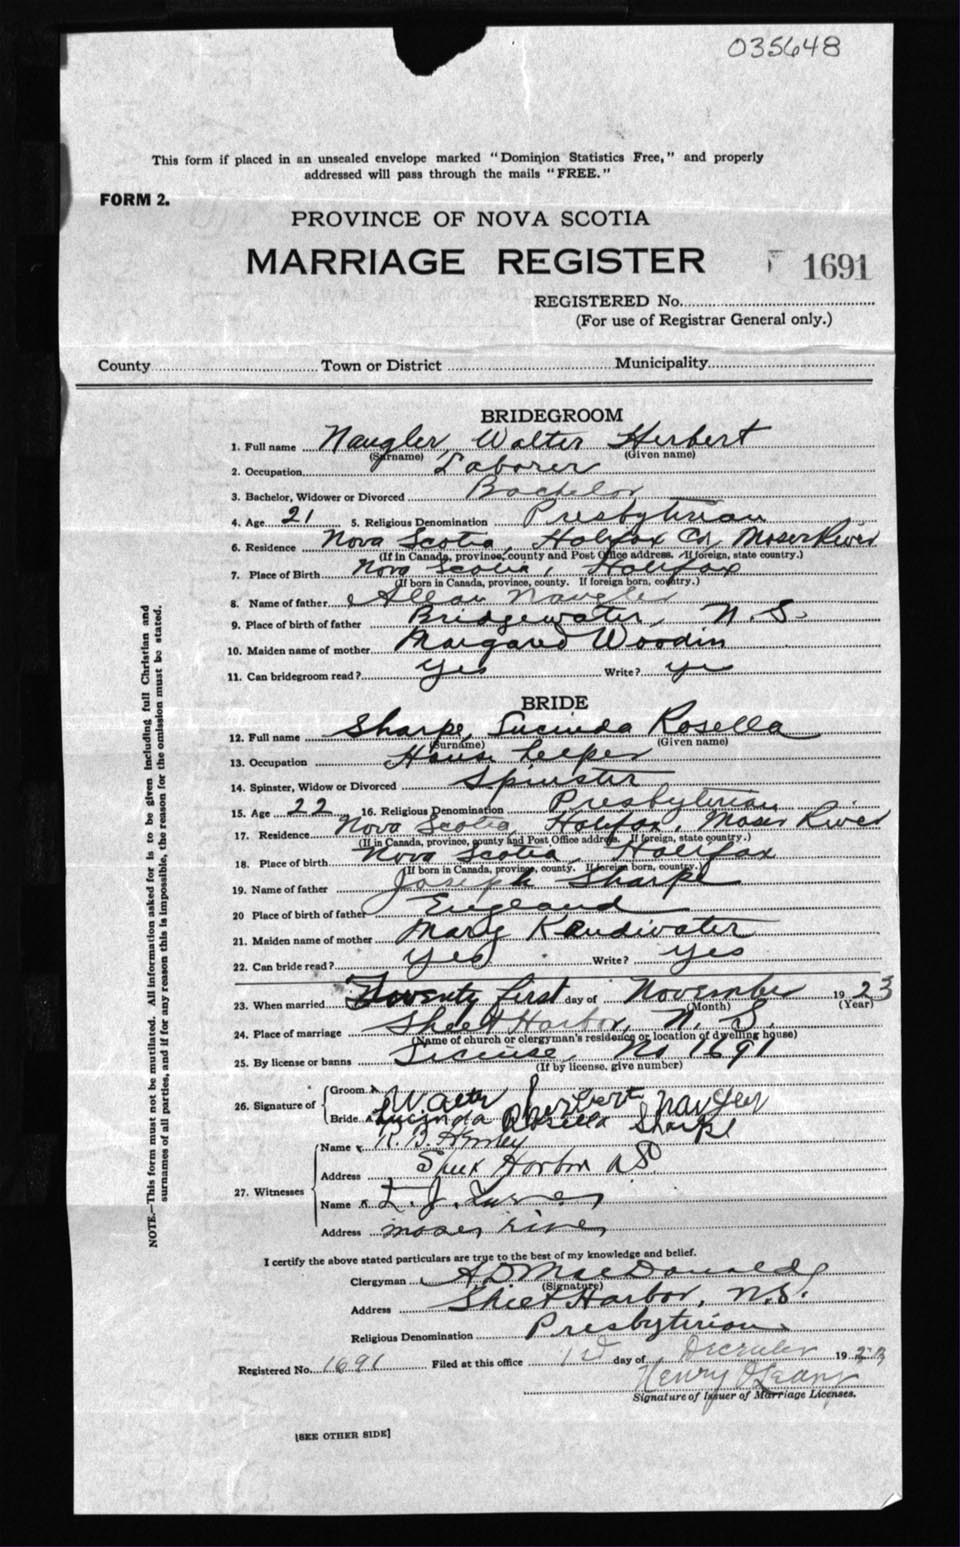 035648
This form if placed in an unsealed envelope marked "Dominion Statistics Free," and properly
addressed will pass through the mails "FREE."
FORM 2.
PROVINCE OF NOVA SCOTIA
MARRIAGE REGISTER
1691
REGISTERED No.
(For use of Registrar General only.)
County Town or District Municipality
BRIDEGROOM
1. Full name Naugler, Walter Herbert
(Surname) (Given name)
2. Occupation Laborer
3. Bachelor, Widower or Divorced Bachelor
4. Age 21 5. Religious Denomination Presbyterian
6. Residence Nova Scotia, Halifax Co, Moser River
(If in Canada, province, county and Post Office address. If foreign, state country.)
7. Place of Birth Nova Scotia, Halifax
(If born in Canada, province, county. If foreign born, country.)
8. Name of father Allan Naugler
9. Place of birth of father Bridgewater, N.S.
10. Maiden name of mother Margaret Woodin
11. Can bridegroom read? Yes Write? yes
BRIDE
12. Full name Sharpe, Lucinda Rosella
(Surname) (Given name)
13. Occupation House keeper
14. Spinster, Widow or Divorced Spinster
15. Age 22 16. Religious Denomination Presbyterian
17. Residence Nova Scotia, Halifax, Moser River
(If in Canada, province, county and Post Office address. If foreign, state country.)
18. Place of birth Nova Scotia, Halifax
(If born in Canada, province, county. If foreign born, country.)
19. Name of father Joseph Sharpe
20 Place of birth of father England
21. Maiden name of mother Mary
22. Can bride read? Yes Write? Yes
23. When married Twenty first day of November 1923
(Month) (Year)
24. Place of marriage Sheet Harbor, N. S.
(Name of church or clergyman's residence or location of dwelling house)
25. By license or banns License, No 1691
(If by license, give number)
26. Signature of
Groom Walter Herbert Naugler
Bride Lucinda Rosella Sharpe
27. Witnesses
Name
Address Harbor
Name L. J.
Address moser river
I certify the above stated particulars are true to the best of my knowledge and belief.
Clergyman A D MacDonald
(Signature)
Address Sheet Harbor, N.S.
Religious Denomination Presbyterian
Registered No. 1691 Filed at this office 1st day of December 1923
Henry O'Leary
Signature of Issuer of Marriage Licenses.
[SEE OTHER SIDE]
NOTE.—This form must not be mutilated. All information asked for is to be given including full Christian and
surnames of all parties, and if for any reason this is impossible, the reason for the omission must be stated.